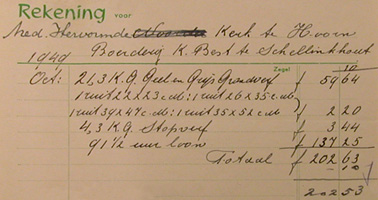 Rekening voor
Ned. Hervormde Kerk te Hoorn
Boerderij K. Best te Schellinkhout
1949 Zegel 10
Oct: 21,3 K.G. Geel en Grijs Grondverf f 59 64
1 ruit 22 x 23 c.m: 1 ruit 26 x 35 c.m
1 ruit 39 x 47 c.m: 1 ruit 35 x 52 c.m f 2 20
4,3 K.G. Stopverf f 3 44
91 1/2 uur loon f 137 25
Totaal f 202 63
10
202 53